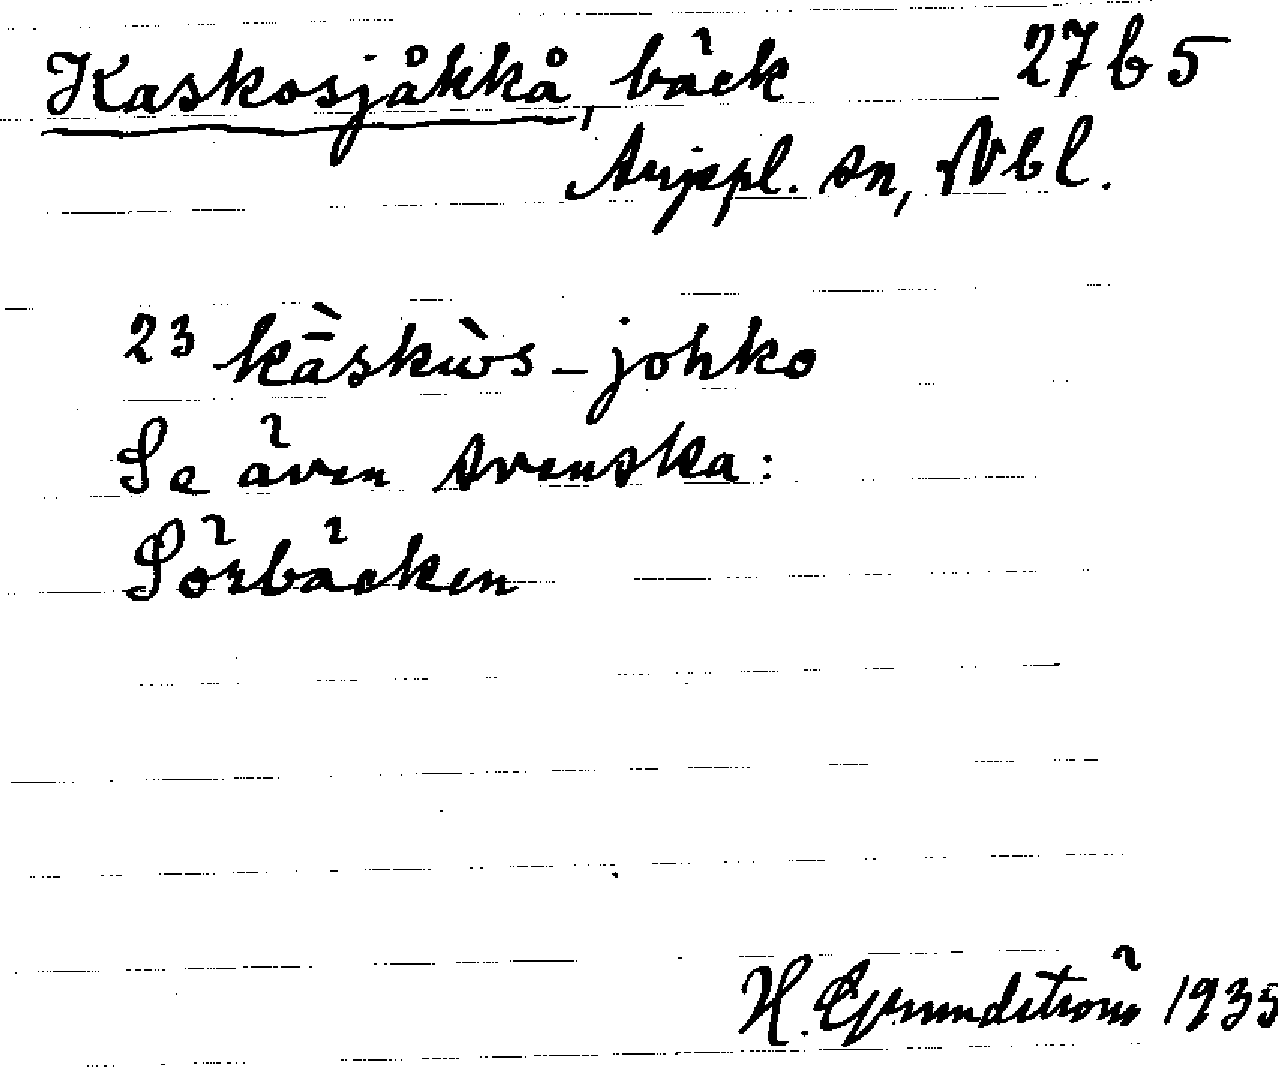 Kaskosjåkkå, bäck 27 b 5
Arjepl. sn, Nbl.
23 kā̀skùs-johko
Se även svenska:
Sörbäcken
H. Grundström 1935